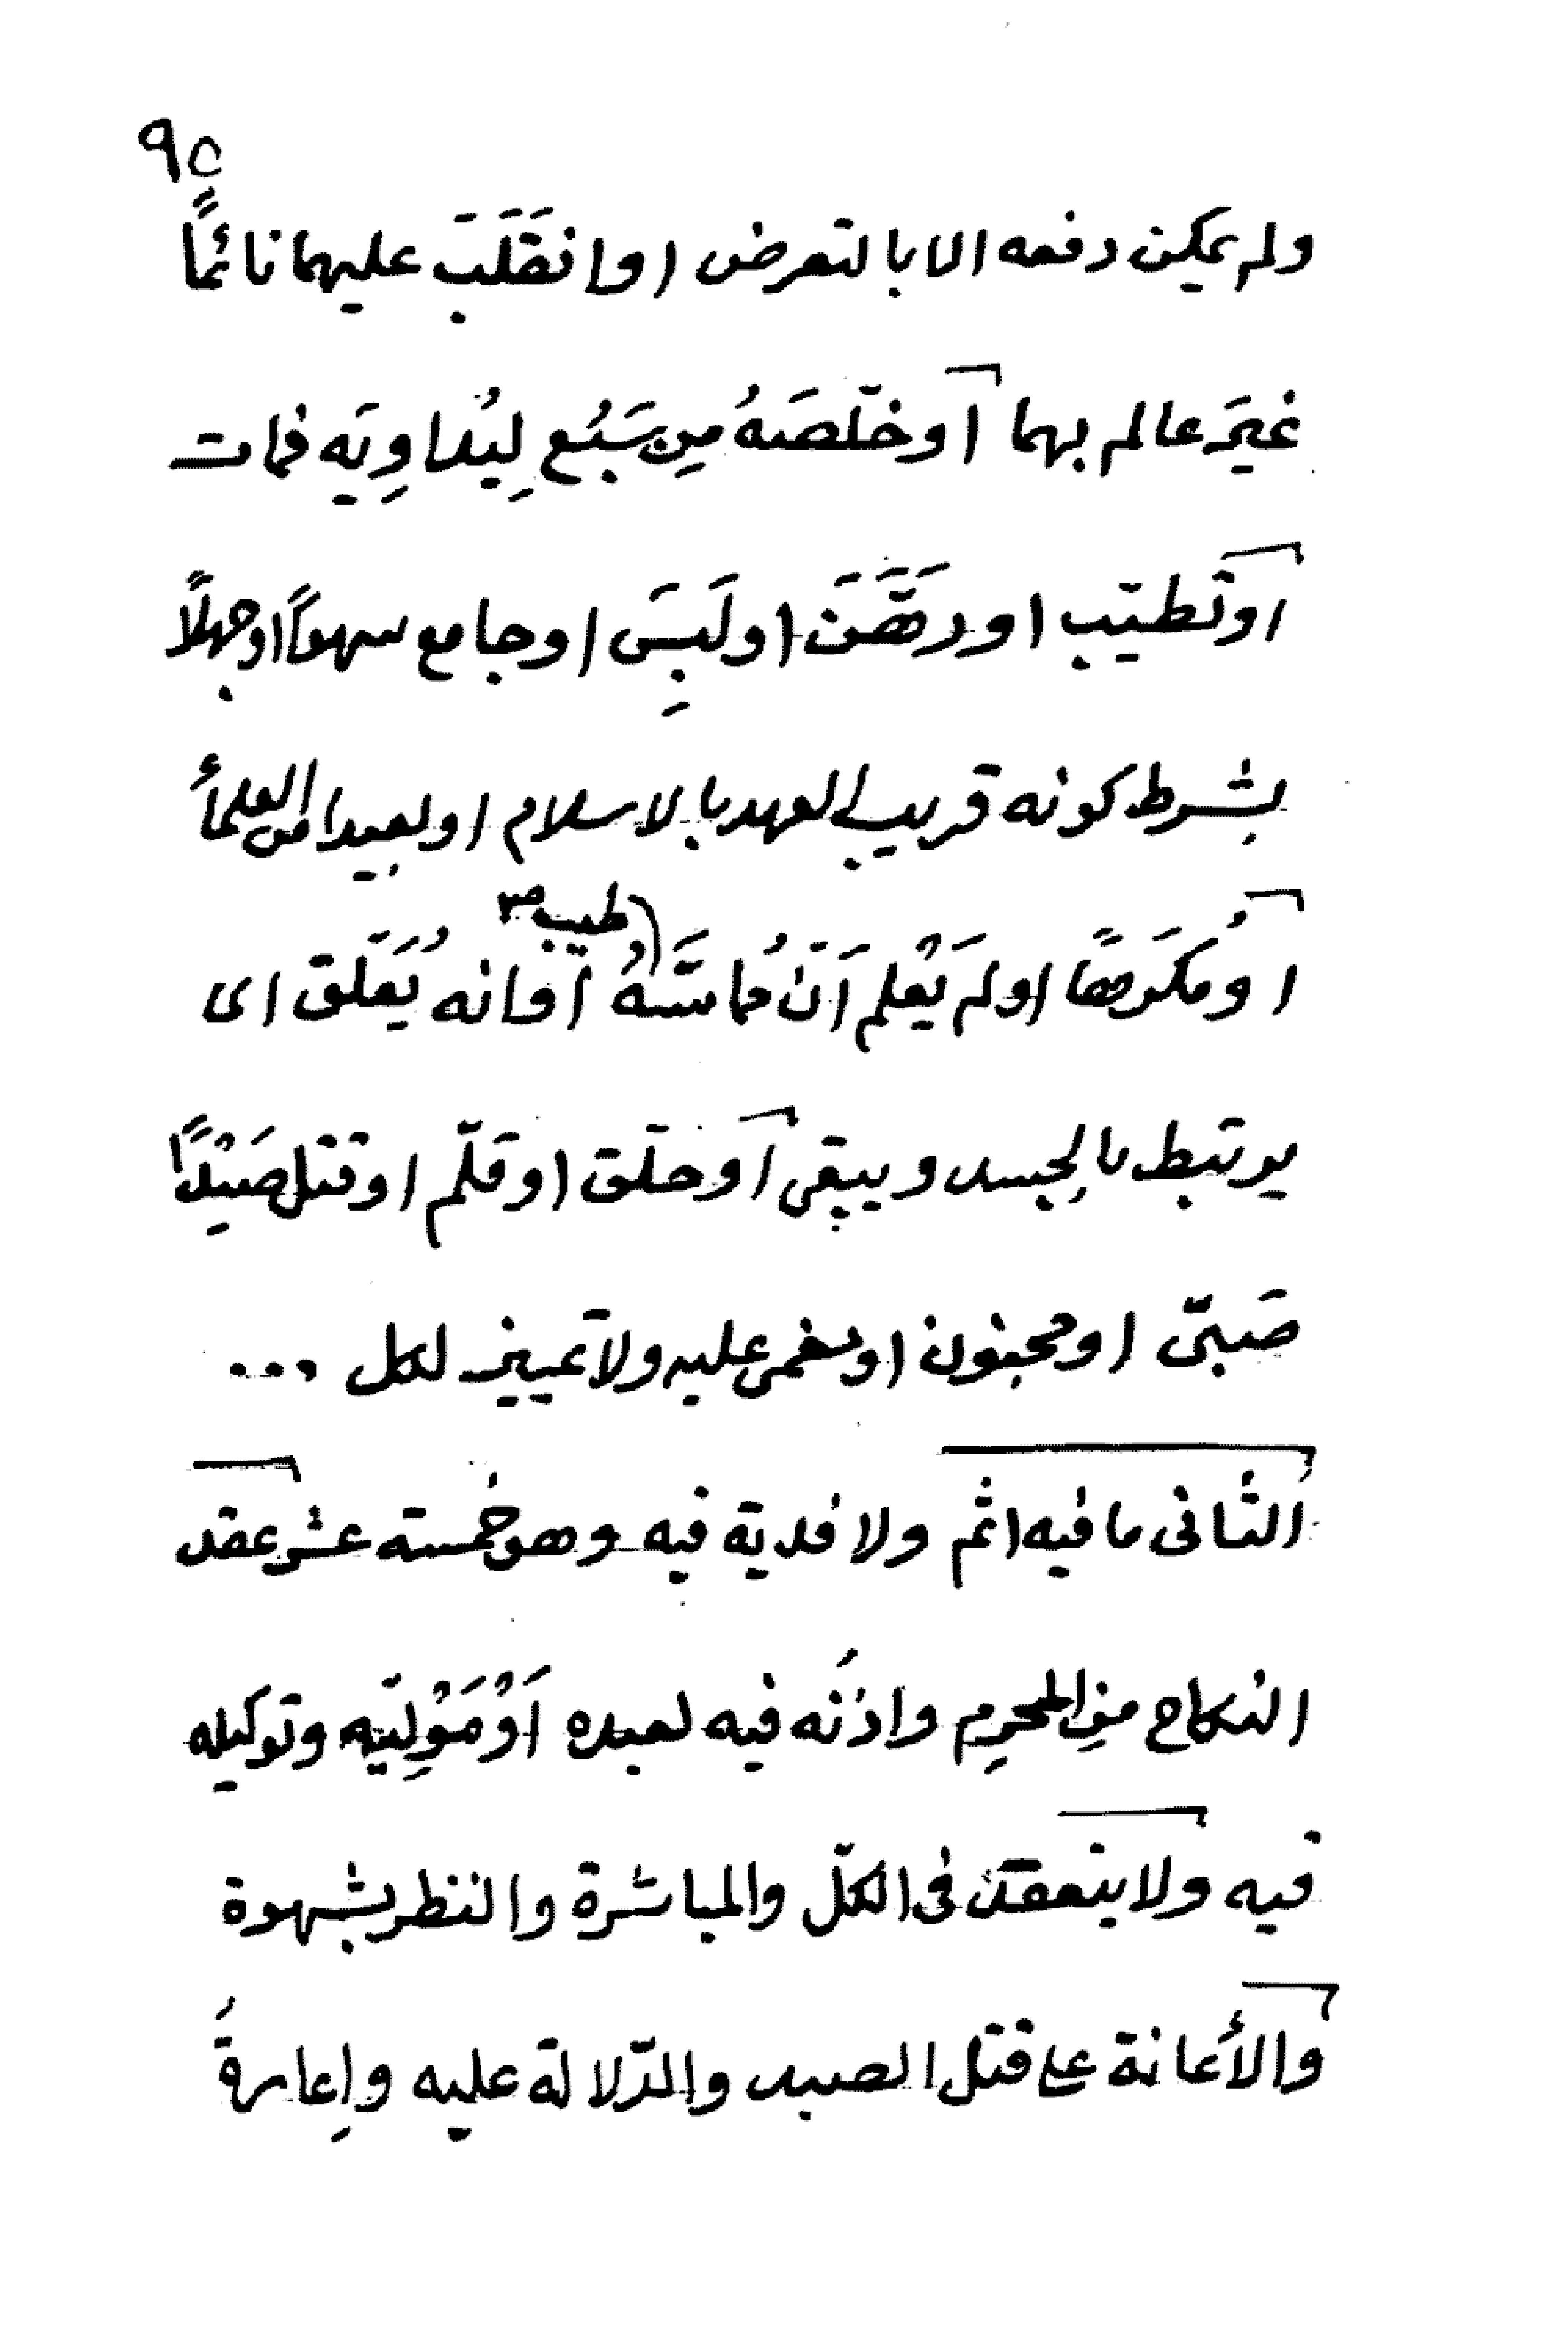 ٩٥
ولم يمكن دفعه الا بالتعرض او انقَلَبَ عليهما نائمًا
غيرَ عالم بهما أو خلّصَهُ مِن سَبُع لِيُداوِيَه فمات
أو تطيّب او دَهَّنَ او لَبِسَ او جامع سهواً او جهلاً
بشرط كونه قريب العهد بالاسلام او بعيدا من العلمأ
او مُكرَهًا او لم يَعْلم اَنَّ مُماسَّهُ (طيب صح) أو انه يُعَلَّق اى
يرتبط بالجسد ويبقى أو حلّق او قلّم او قتل صَيْدًا
صَبىّ او مجنون او مغمى عليه ولا تمييز لكل ...
الثّانى ما فيه اثم ولا فدية فيه وهو خمسة عشر عقد
النكاح من المحرِم واذنُه فيه لعبده اَوْ مَوْلِيّه وتوكيله
فيه ولا ينعقد فى الكلّ والمباشرة والنظر بشهوة
والأعانة على قتل الصيد والدّلالة عليه وإعارةُ